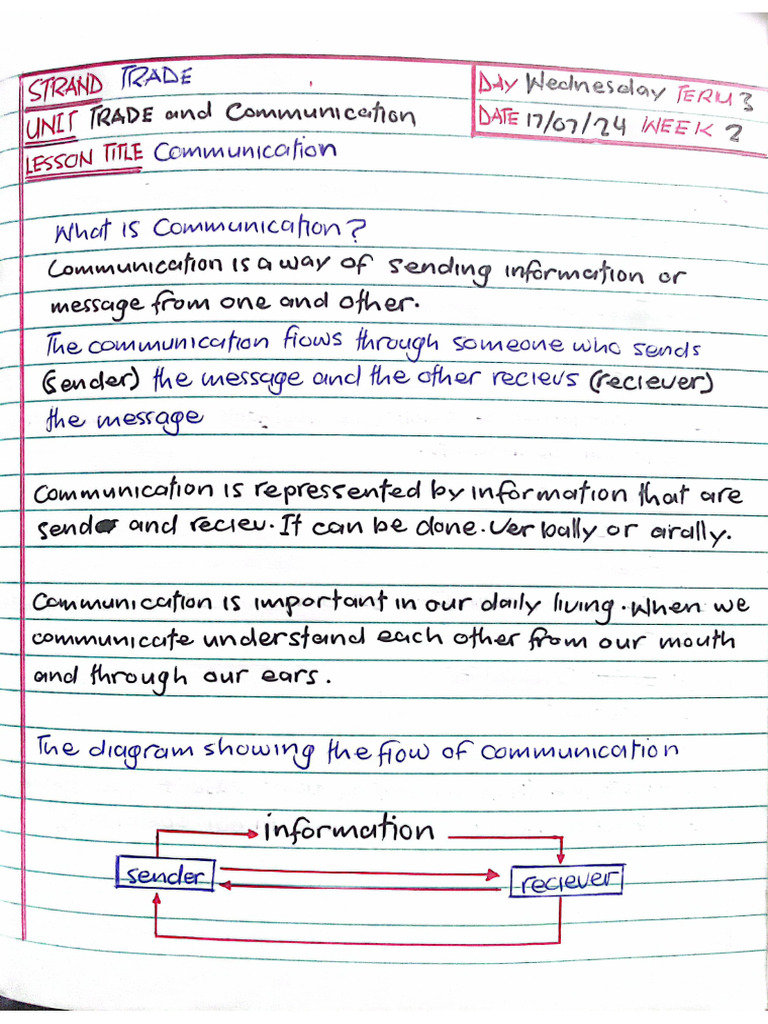 STRAND TRADE
DAY Wednesday TERM 3
UNIT TRADE and Communication
DATE 17/07/24 WEEK 2
LESSON TITLE Communication
What is Communication?
Communication is a way of sending information or
message from one and other.
The communication flows through someone who sends
(sender) the message and the other recievs (reciever)
the message
Communication is repressented by information that are
send and reciev. It can be done. Verbally or airally.
Communication is important in our daily living. When we
communicate understand each other from our mouth
and through our ears.
The diagram showing the flow of communication
information
sender
reciever